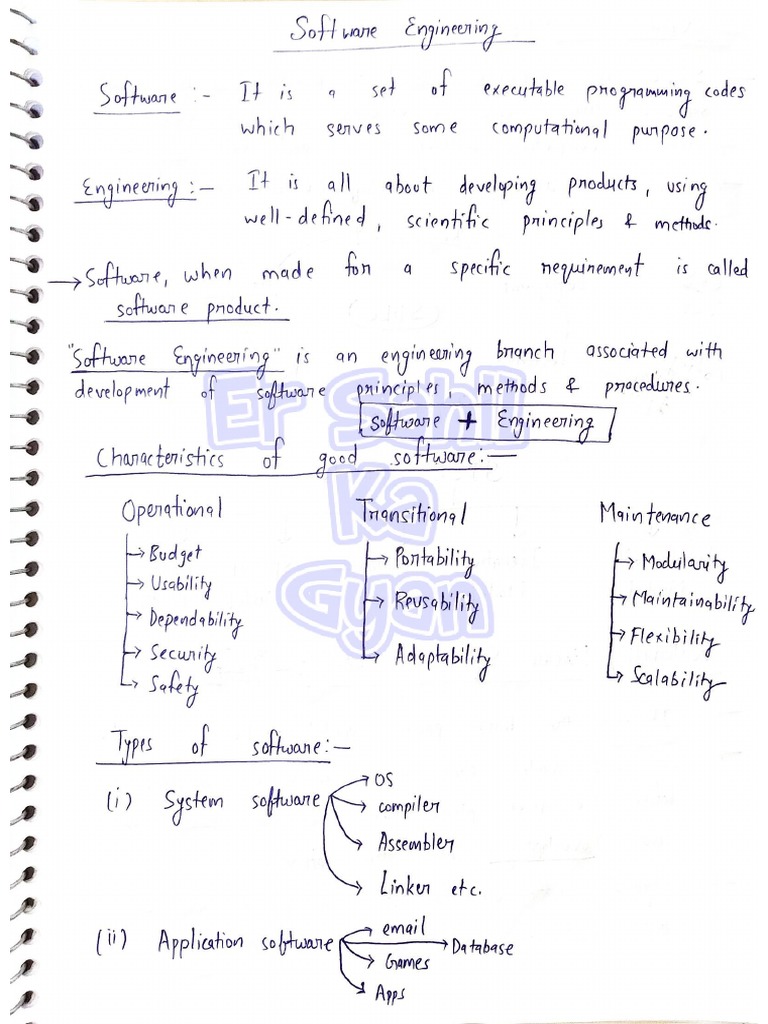 Software Engineering
Software :- It is a set of executable programming codes
which serves some computational purpose.
Engineering :- It is all about developing products, using
well-defined, scientific principles & methods.
→ Software, when made for a specific requirement is called
software product.
"Software Engineering" is an engineering branch associated with
development of software principles, methods & procedures.
Software + Engineering
Characteristics of good software:-
Operational Transitional Maintenance
→ Budget → Portability → Modularity
→ Usability → Reusability → Maintainability
→ Dependability → Adaptability → Flexibility
→ Security → Scalability
→ Safety
Er Sahil
Ka
Gyan
Types of software:-
(i) System software → OS
→ compiler
→ Assembler
→ Linker etc.
(ii) Application software → email
→ Database
→ Games
→ Apps